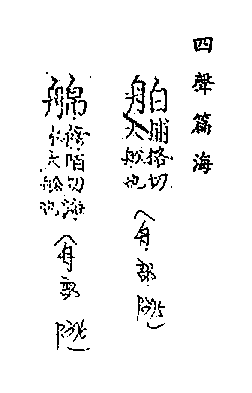 四聲篇海
舶捕格切大船也(舟部
傍陌切海中大船也(舟部